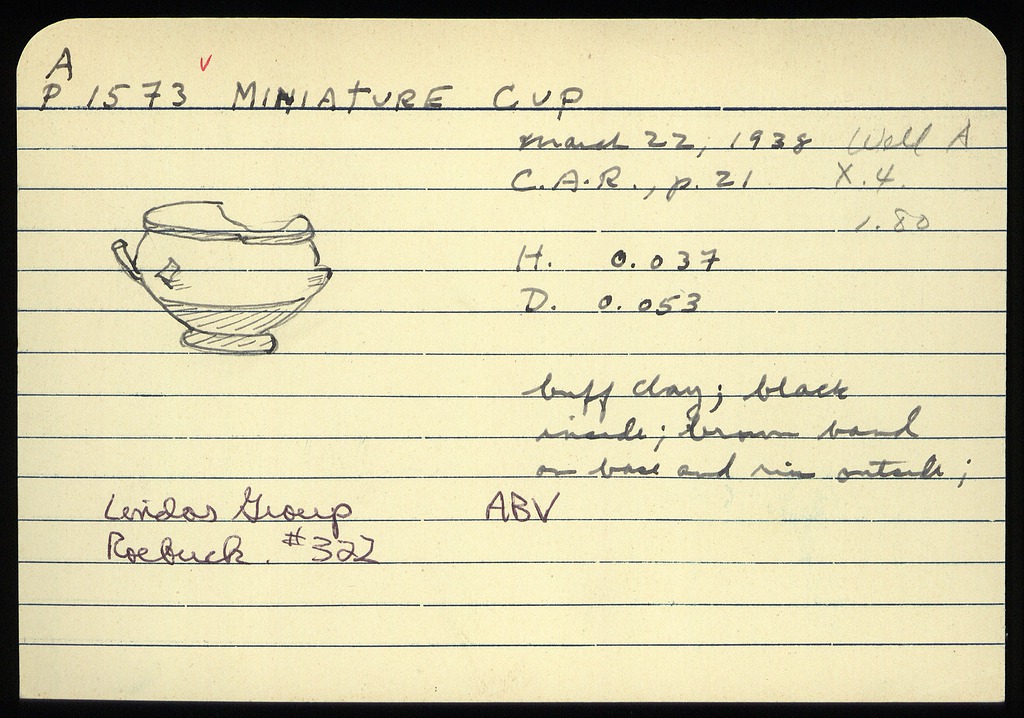 A
P 1573 ✓ MINIATURE CUP
March 22, 1938 Well A
C.A.R., p. 21 X.4.
1.80
H. 0.037
D. 0.053
buff clay; black
inside; brown band
on base and rim outside;
Lindos Group ABV
Roebuck. #322